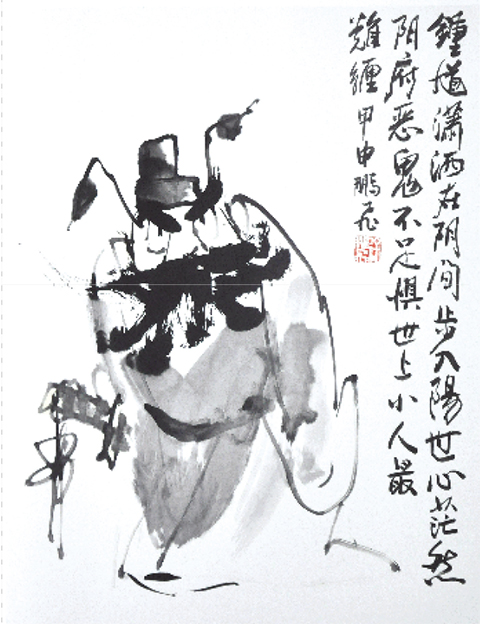 鍾馗瀟洒在阴间步入陽世心茫然
阴府恶鬼不足惧世上小人最
難纏 甲申鵬飛